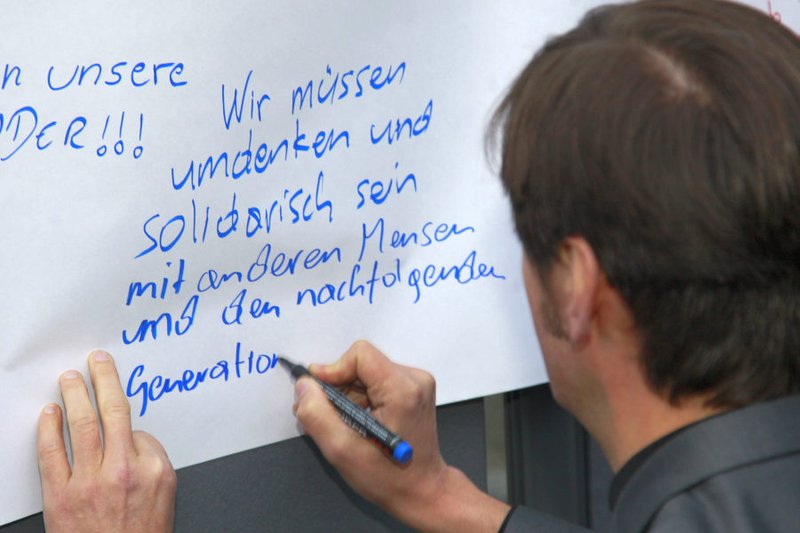 n unsere
DER!!!
Wir müssen
umdenken und
solidarisch sein
mit anderen Mensen
und den nachfolgenden
Generation